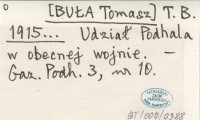 o [BUŁA Tomasz] T. B.
1915... Udział Podhala
w obecnej wojnie. —
Gaz. Podh. 3, nr 10.
BT/004/0388